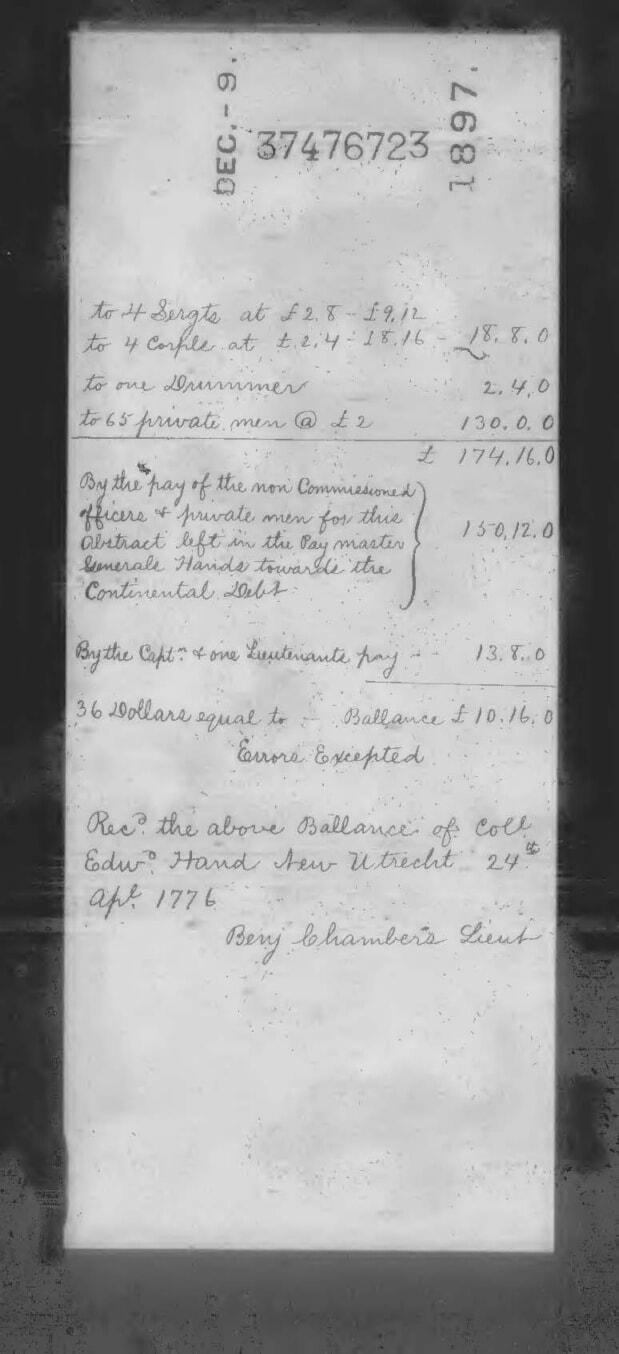 DEC.-9. 37476723 1897.
to 4 Sergts at £2.8 - £9.12
to 4 Corpls at £.2.4 - £8.16 - 18.8.0
to one Drummer 2.4.0
to 65 private men @ £2 130.0.0
£ 174.16.0
By the pay of the non Commissioned
officers & private men for this
Abstract left in the Pay master
Generals Hands towards the
Continental Debt 150.12.0
By the Captn. & one Lieutenants pay -- 13.8.0
36 Dollars equal to - Ballance £10.16.0
Errors Excepted
Recd. the above Ballance of Coll
Edwd. Hand New Utrecht 24th.
Apl. 1776
Benj Chambers Lieut